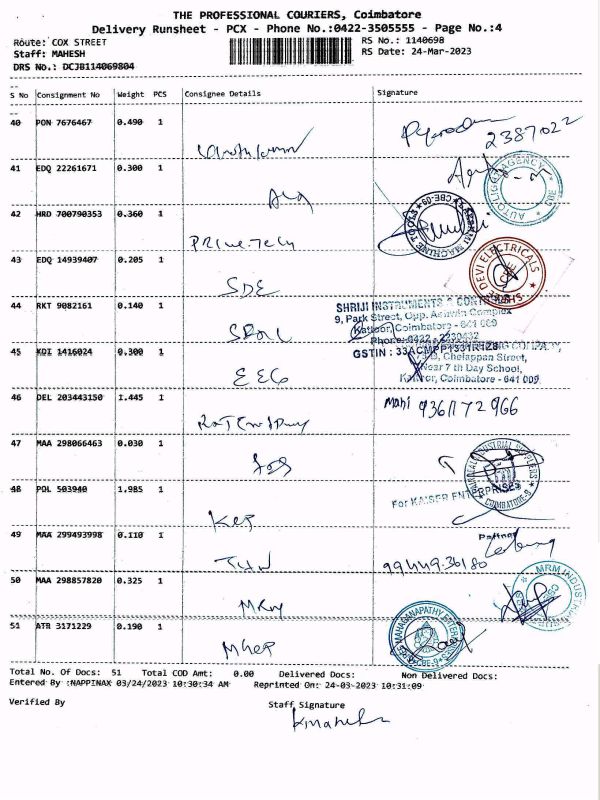 THE PROFESSIONAL COURIERS, Coimbatore
Delivery Runsheet - PCX - Phone No.:0422-3505555 - Page No.:4
Route: COX STREET
RS No.: 1140698
Staff: MAHESH
RS Date: 24-Mar-2023
DRS No.: DCJB114069804
S No Consignment No Weight PCS Consignee Details Signature
40 PON 7676467 0.490 1
2387022
41 EDQ 22261671 0.300 1
AUTOLIGO AGENCY CBE
42 HRD 700790353 0.360 1
PRIME TECH
MACHINE TOOLS CBE-09
43 EDQ 14939407 0.205 1
SDE
SHREE DEVI ELECTRICALS
44 RKT 9082161 0.140 1
SHRIJI INSTRUMENTS & CONTROLS
9, Park Street, Opp. Ashwin Complex
Kattoor, Coimbatore - 641 009
Phone: 0422 - 2230432
GSTIN : 33ACMPP1331R1Z8
45 KDI 1416024 0.300 1
COMPANY,
Chelappan Street,
Near 7 th Day School,
Kattoor, Coimbatore - 641 009
46 DEL 203443150 1.445 1
Mani 9361172966
47 MAA 298066463 0.030 1
INDUSTRIAL SUPPLIERS COIMBATORE-9
48 POL 503940 1.985 1
For KAISER ENTERPRISES
Partner
49 MAA 299493998 0.110 1
99449.36180
50 MAA 298857820 0.325 1
MRM INDUSTRIAL
51 ATR 3171229 0.190 1
MAHAGANAPATHY CBE-9
Total No. Of Docs: 51 Total COD Amt: 0.00 Delivered Docs: Non Delivered Docs:
Entered By :NAPPINAX 03/24/2023 10:30:34 AM Reprinted On: 24-03-2023 10:31:09
Verified By
Staff Signature